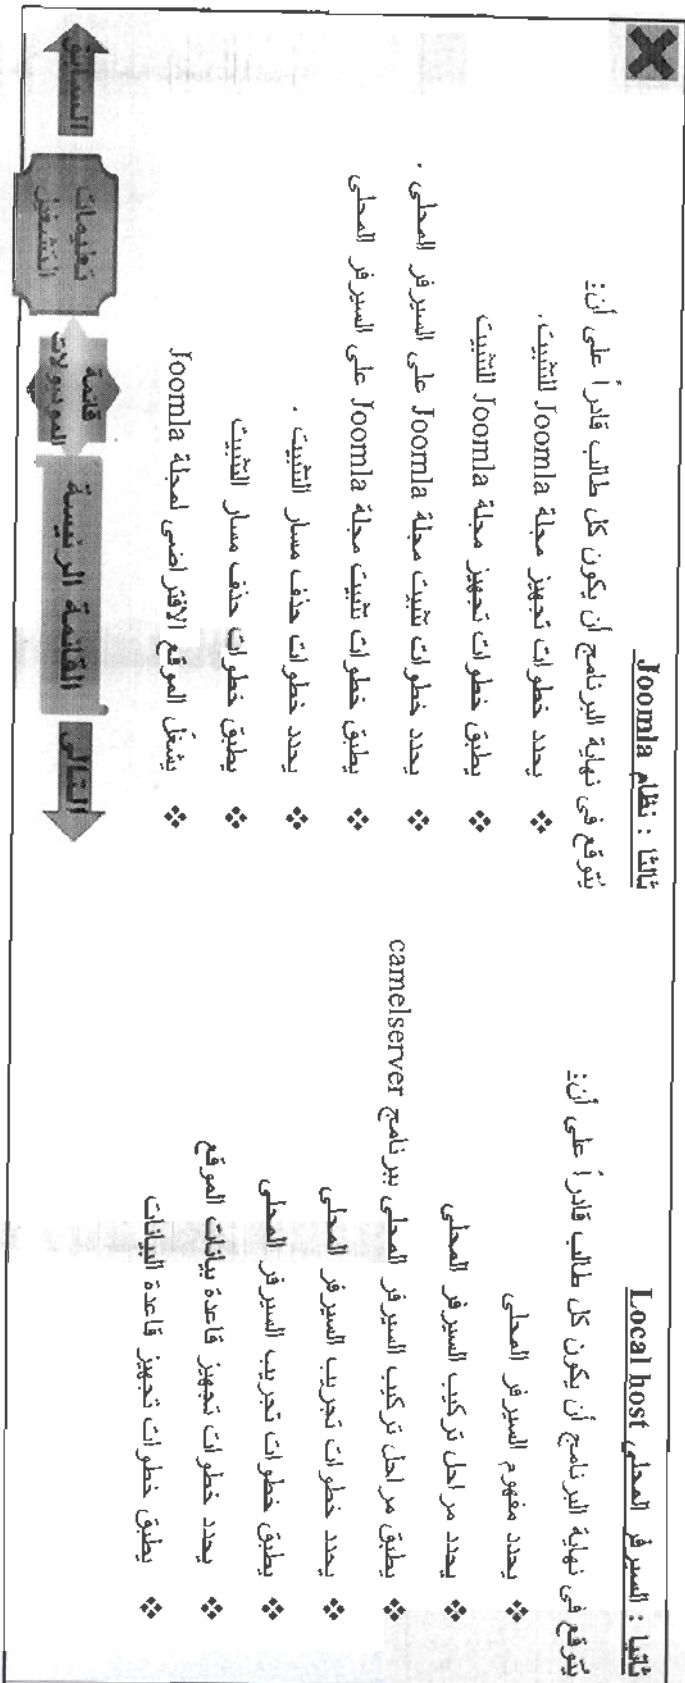 ثانيا : السيرفر المحلى Local host
يتوقع فى نهاية البرنامج أن يكون كل طالب قادراً على أن:
❖ يحدد مفهوم السيرفر المحلى
❖ يحدد مراحل تركيب السيرفر المحلى
❖ يطبق مراحل تركيب السيرفر المحلى ببرنامج camelserver
❖ يحدد خطوات تجريب السيرفر المحلى
❖ يطبق خطوات تجريب السيرفر المحلى
❖ يحدد خطوات تجهيز قاعدة بيانات الموقع
❖ يطبق خطوات تجهيز قاعدة البيانات
ثالثا : نظام Joomla
يتوقع فى نهاية البرنامج أن يكون كل طالب قادراً على أن:
❖ يحدد خطوات تجهيز مجلة Joomla للتثبيت.
❖ يطبق خطوات تجهيز مجلة Joomla للتثبيت
❖ يحدد خطوات تثبيت مجلة Joomla على السيرفر المحلى .
❖ يطبق خطوات تثبيت مجلة Joomla على السيرفر المحلى
❖ يحدد خطوات حذف مسار التثبيت .
❖ يطبق خطوات حذف مسار التثبيت
❖ يشغل الموقع الافتراضى لمجلة Joomla
التالى
القائمة الرئيسة
قائمة
الموديولات
تعليمات
التشغيل
السابق